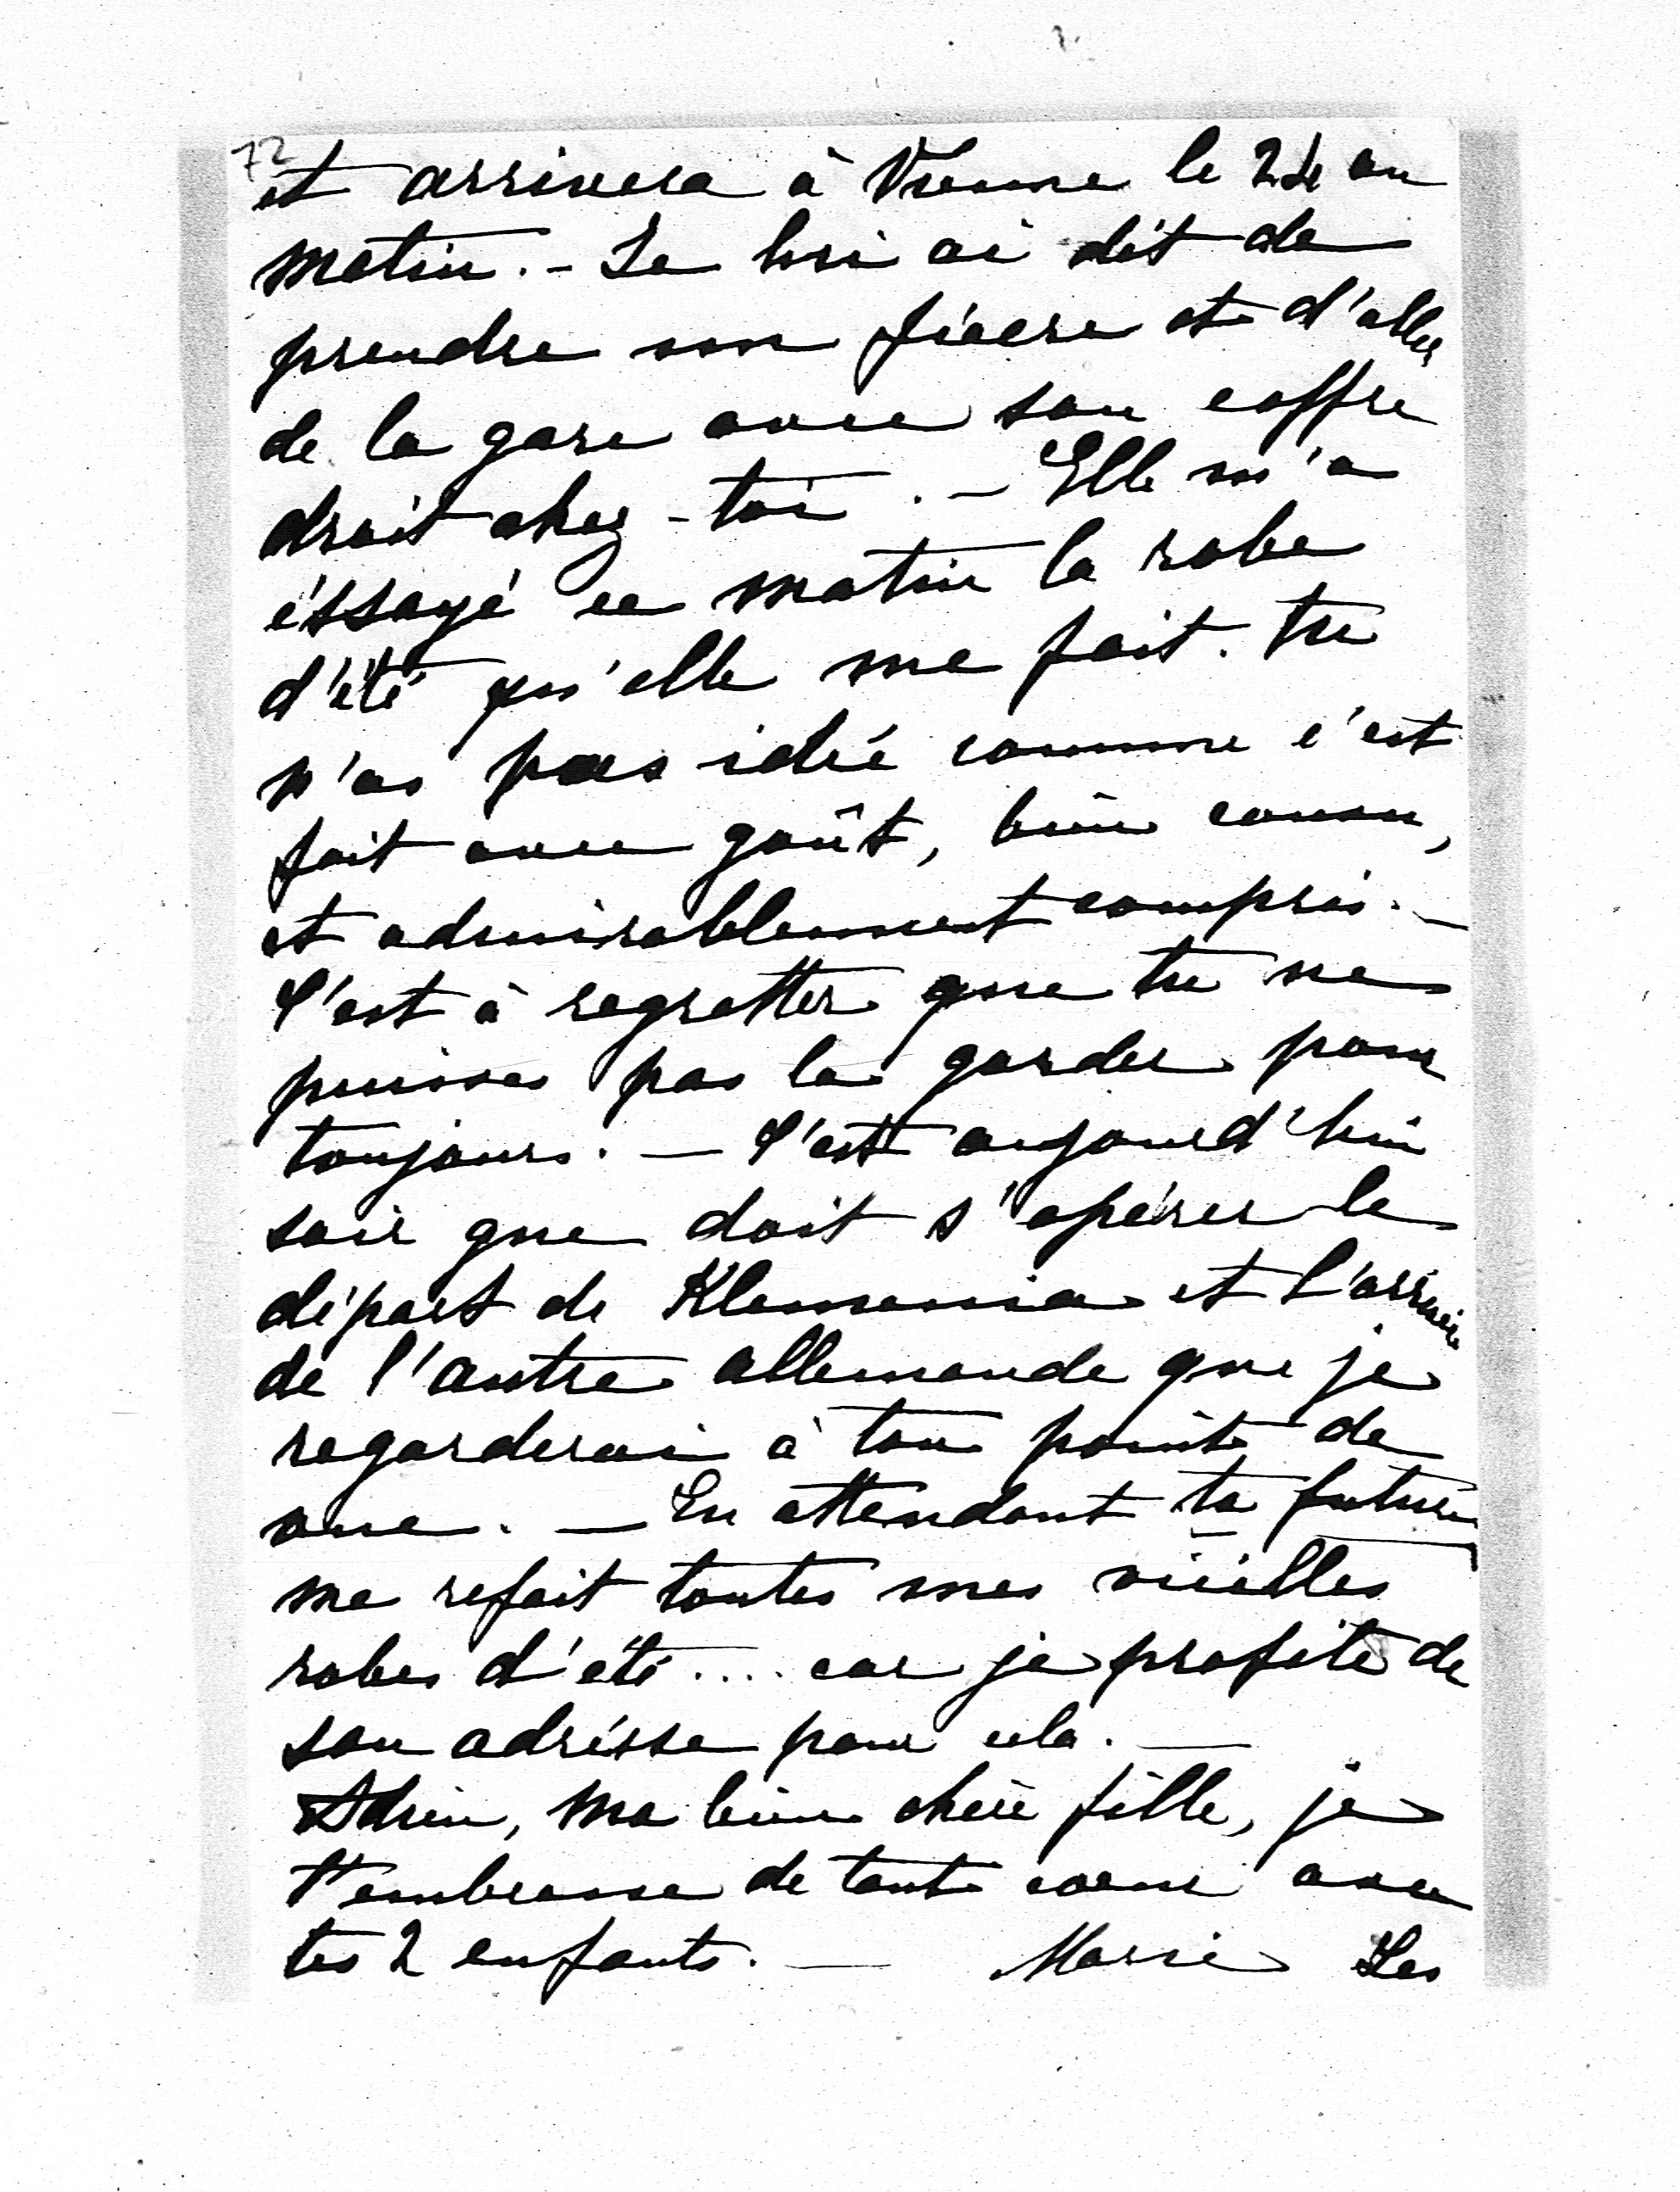 72
et arrivera à Vienne le 24 au
matin. - Je lui ai dit de
prendre son fiacre et d'aller
de la gare avec son coffre
droit chez-toi. - Elle m'a
éssayé ce matin la robe
d'été qu'elle me fait. tu
n'as pas idée comme c'est
fait avec goût, bien cousu,
et admirablement compris. -
C'est à regretter que tu ne
puisses pas la garder pour
toujours. - C'est aujourd'hui
soir que doit s'opérer le
départ de et l'arrivée
de l'autre allemande que je
regarderai à ton point de
vue. - En attendant ta future
me refait toutes mes vieilles
robes d'été .... car je profite de
son adrésse pour cela. -
Adieu, ma bien chère fille, je
t'embrasse de tout coeur avec
tes 2 enfants. - Marie Les